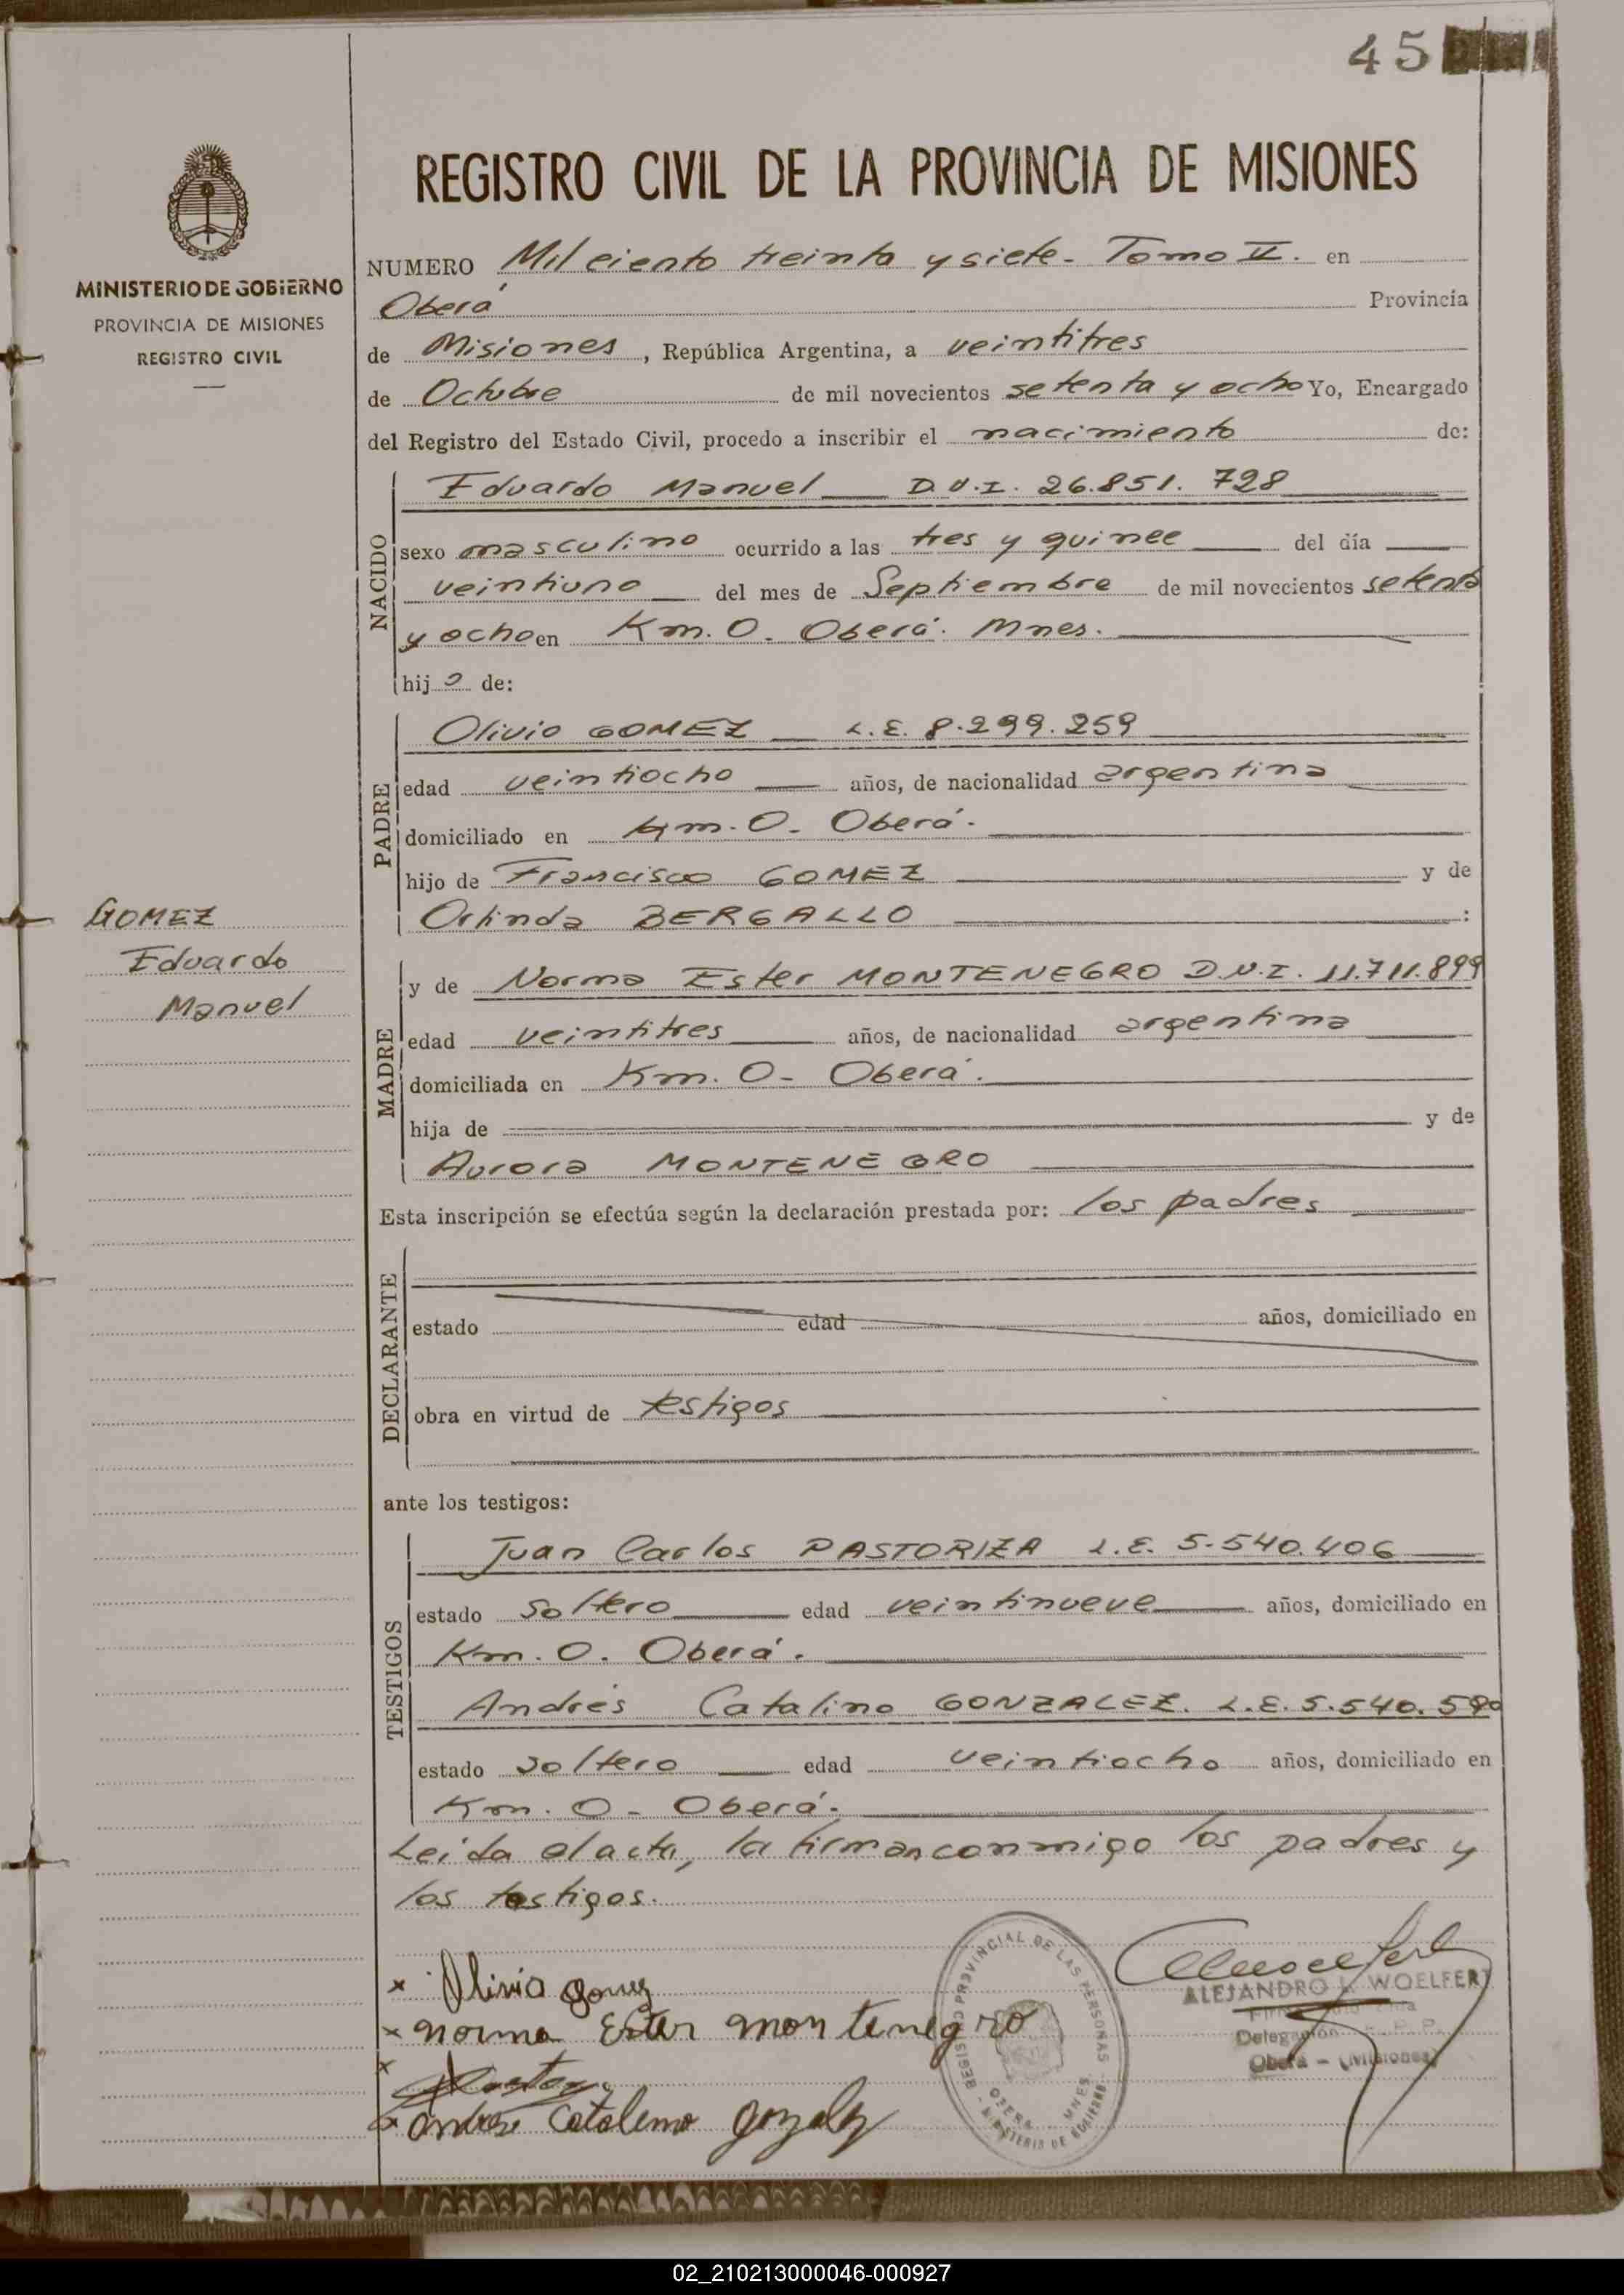 45
REGISTRO CIVIL DE LA PROVINCIA DE MISIONES
MINISTERIO DE GOBIERNO
PROVINCIA DE MISIONES
REGISTRO CIVIL
NUMERO Mil ciento treinta y siete - Tomo II. en
Oberá Provincia
de Misiones, República Argentina, a veintitres
de Octubre de mil novecientos setenta y ocho Yo, Encargado
del Registro del Estado Civil, procedo a inscribir el nacimiento de:
NACIDO
Eduardo Manuel D.N.I. 26.851.728
sexo masculino ocurrido a las tres y quince del día
veintiuno del mes de Septiembre de mil novecientos setenta
y ocho en Km. 0. Oberá. Mnes.
hijo de:
PADRE
Olivio GOMEZ L.E. 8.299.259
edad veintiocho años, de nacionalidad argentina
domiciliado en Km. 0. Oberá.
hijo de Francisco GOMEZ y de
Orlinda BERGALLO :
GOMEZ
Eduardo
Manuel
MADRE
y de Norma Ester MONTENEGRO D.N.I. 11.711.899
edad veintitres años, de nacionalidad argentina
domiciliada en Km. 0 - Oberá.
hija de y de
Aurora MONTENEGRO
Esta inscripción se efectúa según la declaración prestada por: los padres
DECLARANTE
estado edad años, domiciliado en
obra en virtud de testigos
ante los testigos:
TESTIGOS
Juan Carlos PASTORIZA L.E. 5.540.406
estado soltero edad veintinueve años, domiciliado en
Km. 0. Oberá.
Andrés Catalino GONZALEZ. L.E. 5.540.590
estado soltero edad veintiocho años, domiciliado en
Km. 0 - Oberá.
Leida el acta, la firman conmigo los padres y
los testigos.
x Olivio Gomez
x norma Ester montenegro
x
x andres Catalino gonzalez
REGISTRO PROVINCIAL DE LAS PERSONAS
OBERA - MNES
MINISTERIO DE GOBIERNO
ALEJANDRO L. WOELFERT
Delegación R. P. P.
Oberá - (Misiones)
02_210213000046-000927